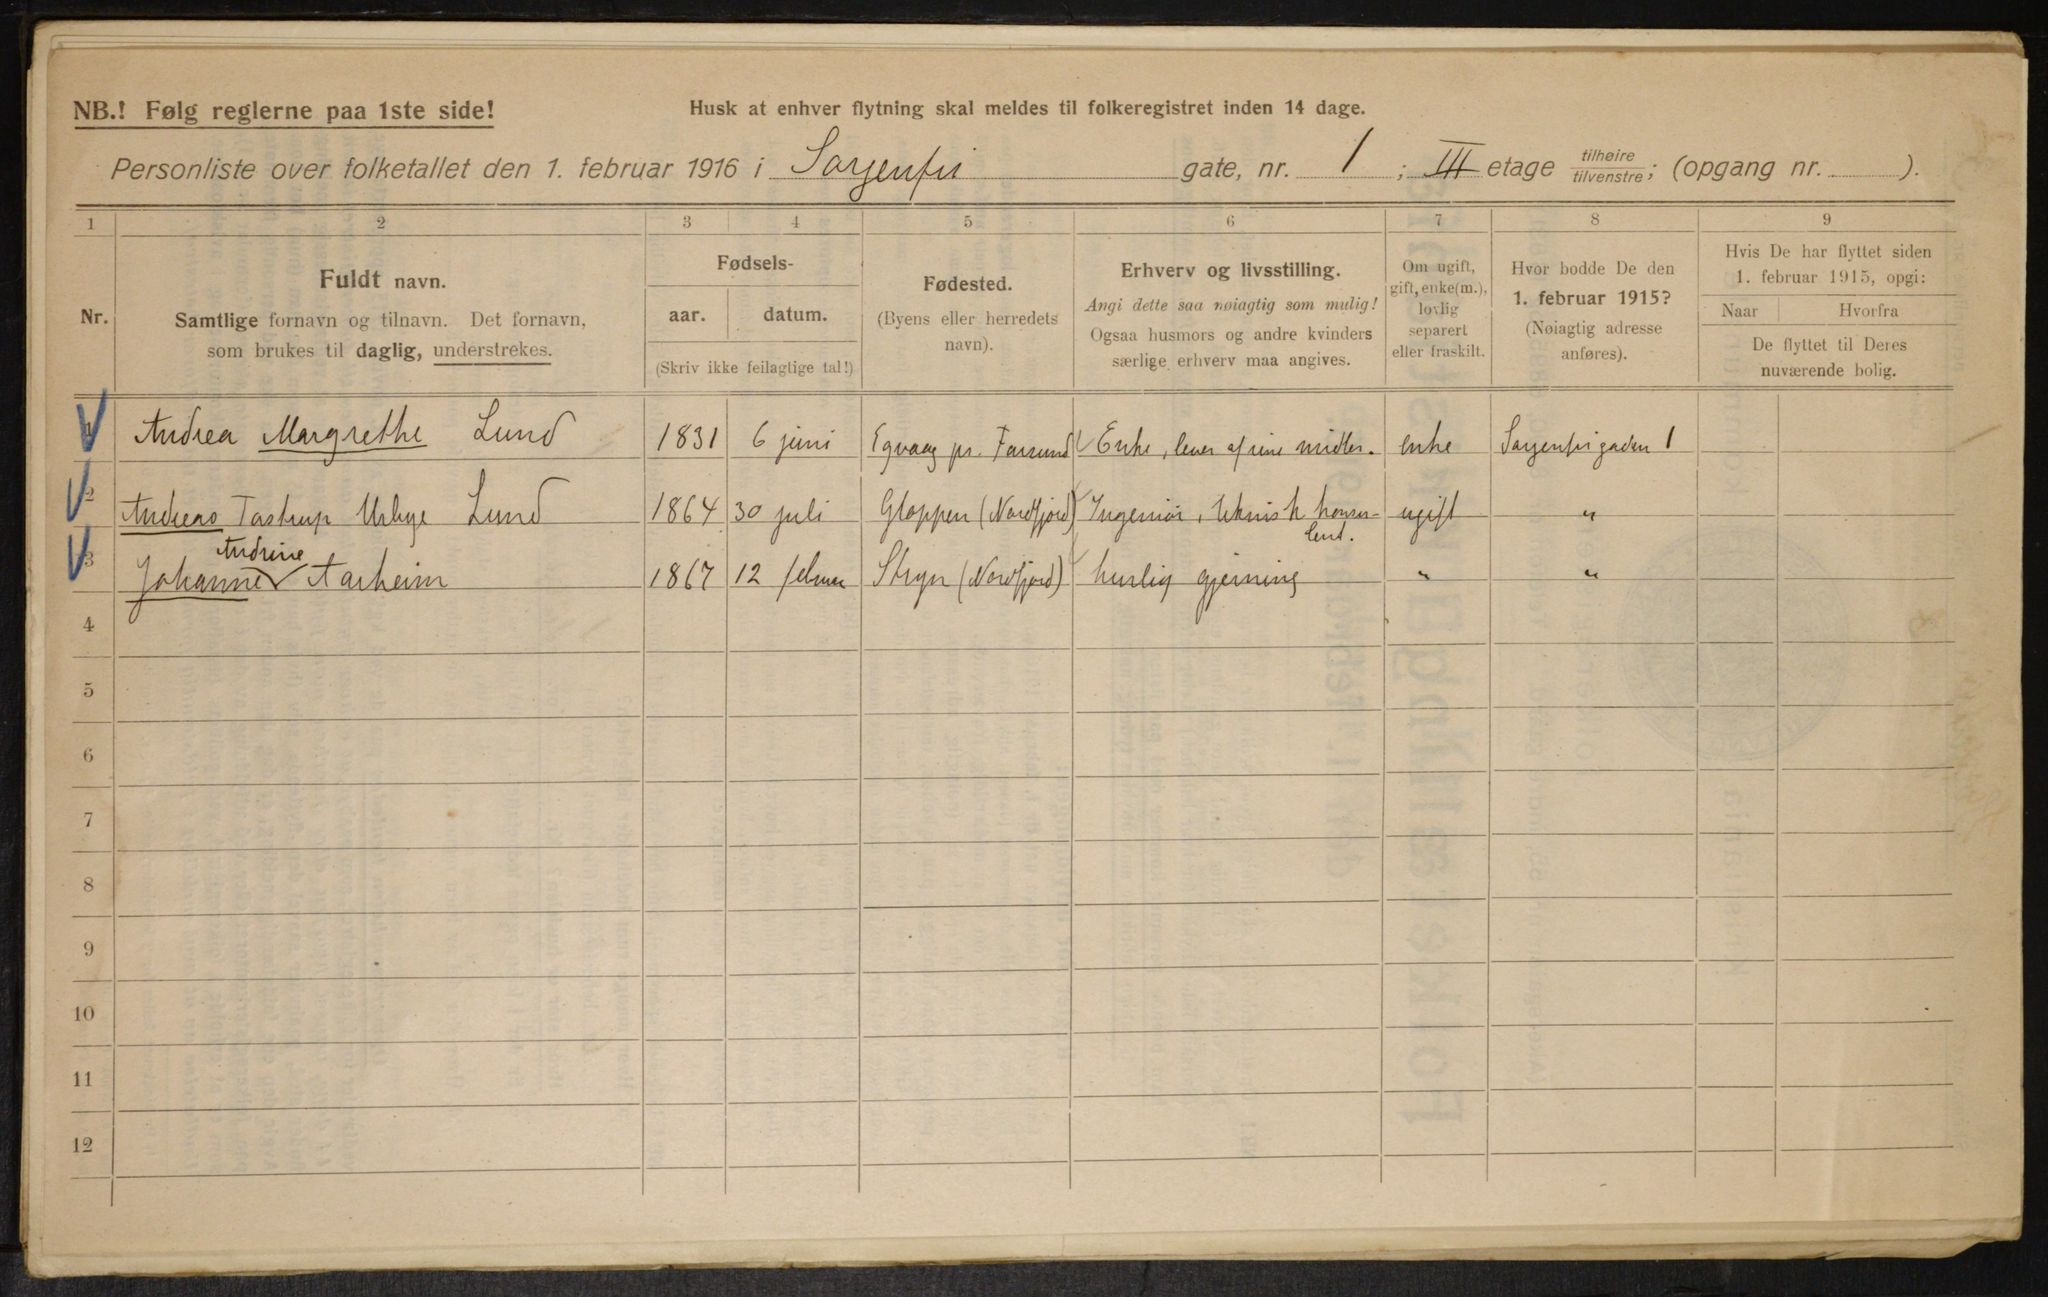 NB.! Følg reglerne paa 1ste side!
Husk at enhver flytning skal meldes til folkeregistret inden 14 dage.
Personliste over folketallet den 1. februar 1916 i Sorgenfri gate, nr. 1 ; III etage tilhøire tilvenstre; (opgang nr. ).
1 2 3 4 5 6 7 8 9
Nr.
Fuldt navn.
Samtlige fornavn og tilnavn. Det fornavn,
som brukes til daglig, understrekes.
Fødsels-
aar. datum.
(Skriv ikke feilagtige tal!)
Fødested.
(Byens eller herredets
navn).
Erhverv og livsstilling.
Angi dette saa nøiagtig som mulig!
Ogsaa husmors og andre kvinders
særlige erhverv maa angives.
Om ugift,
gift, enke(m.),
lovlig
separert
eller fraskilt.
Hvor bodde De den
1. februar 1915?
(Nøiagtig adresse
anføres).
Hvis De har flyttet siden
1. februar 1915, opgi:
Naar Hvorfra
De flyttet til Deres
nuværende bolig.
1 Andrea Margrethe Lund 1831 6 juni Egvaag pr. Farsund Enke, lever af sine midler. enke Sorgenfrigaden 1
2 Andreas Tostrup Urbye Lund 1864 30 juli Gloppen (Nordfjord) Ingeniør, teknisk konsu-
lent. ugift "
3 Johanne Andrine Aarheim 1867 12 februar Stryn (Nordfjord) huslig gjerning " "
4
5
6
7
8
9
10
11
12